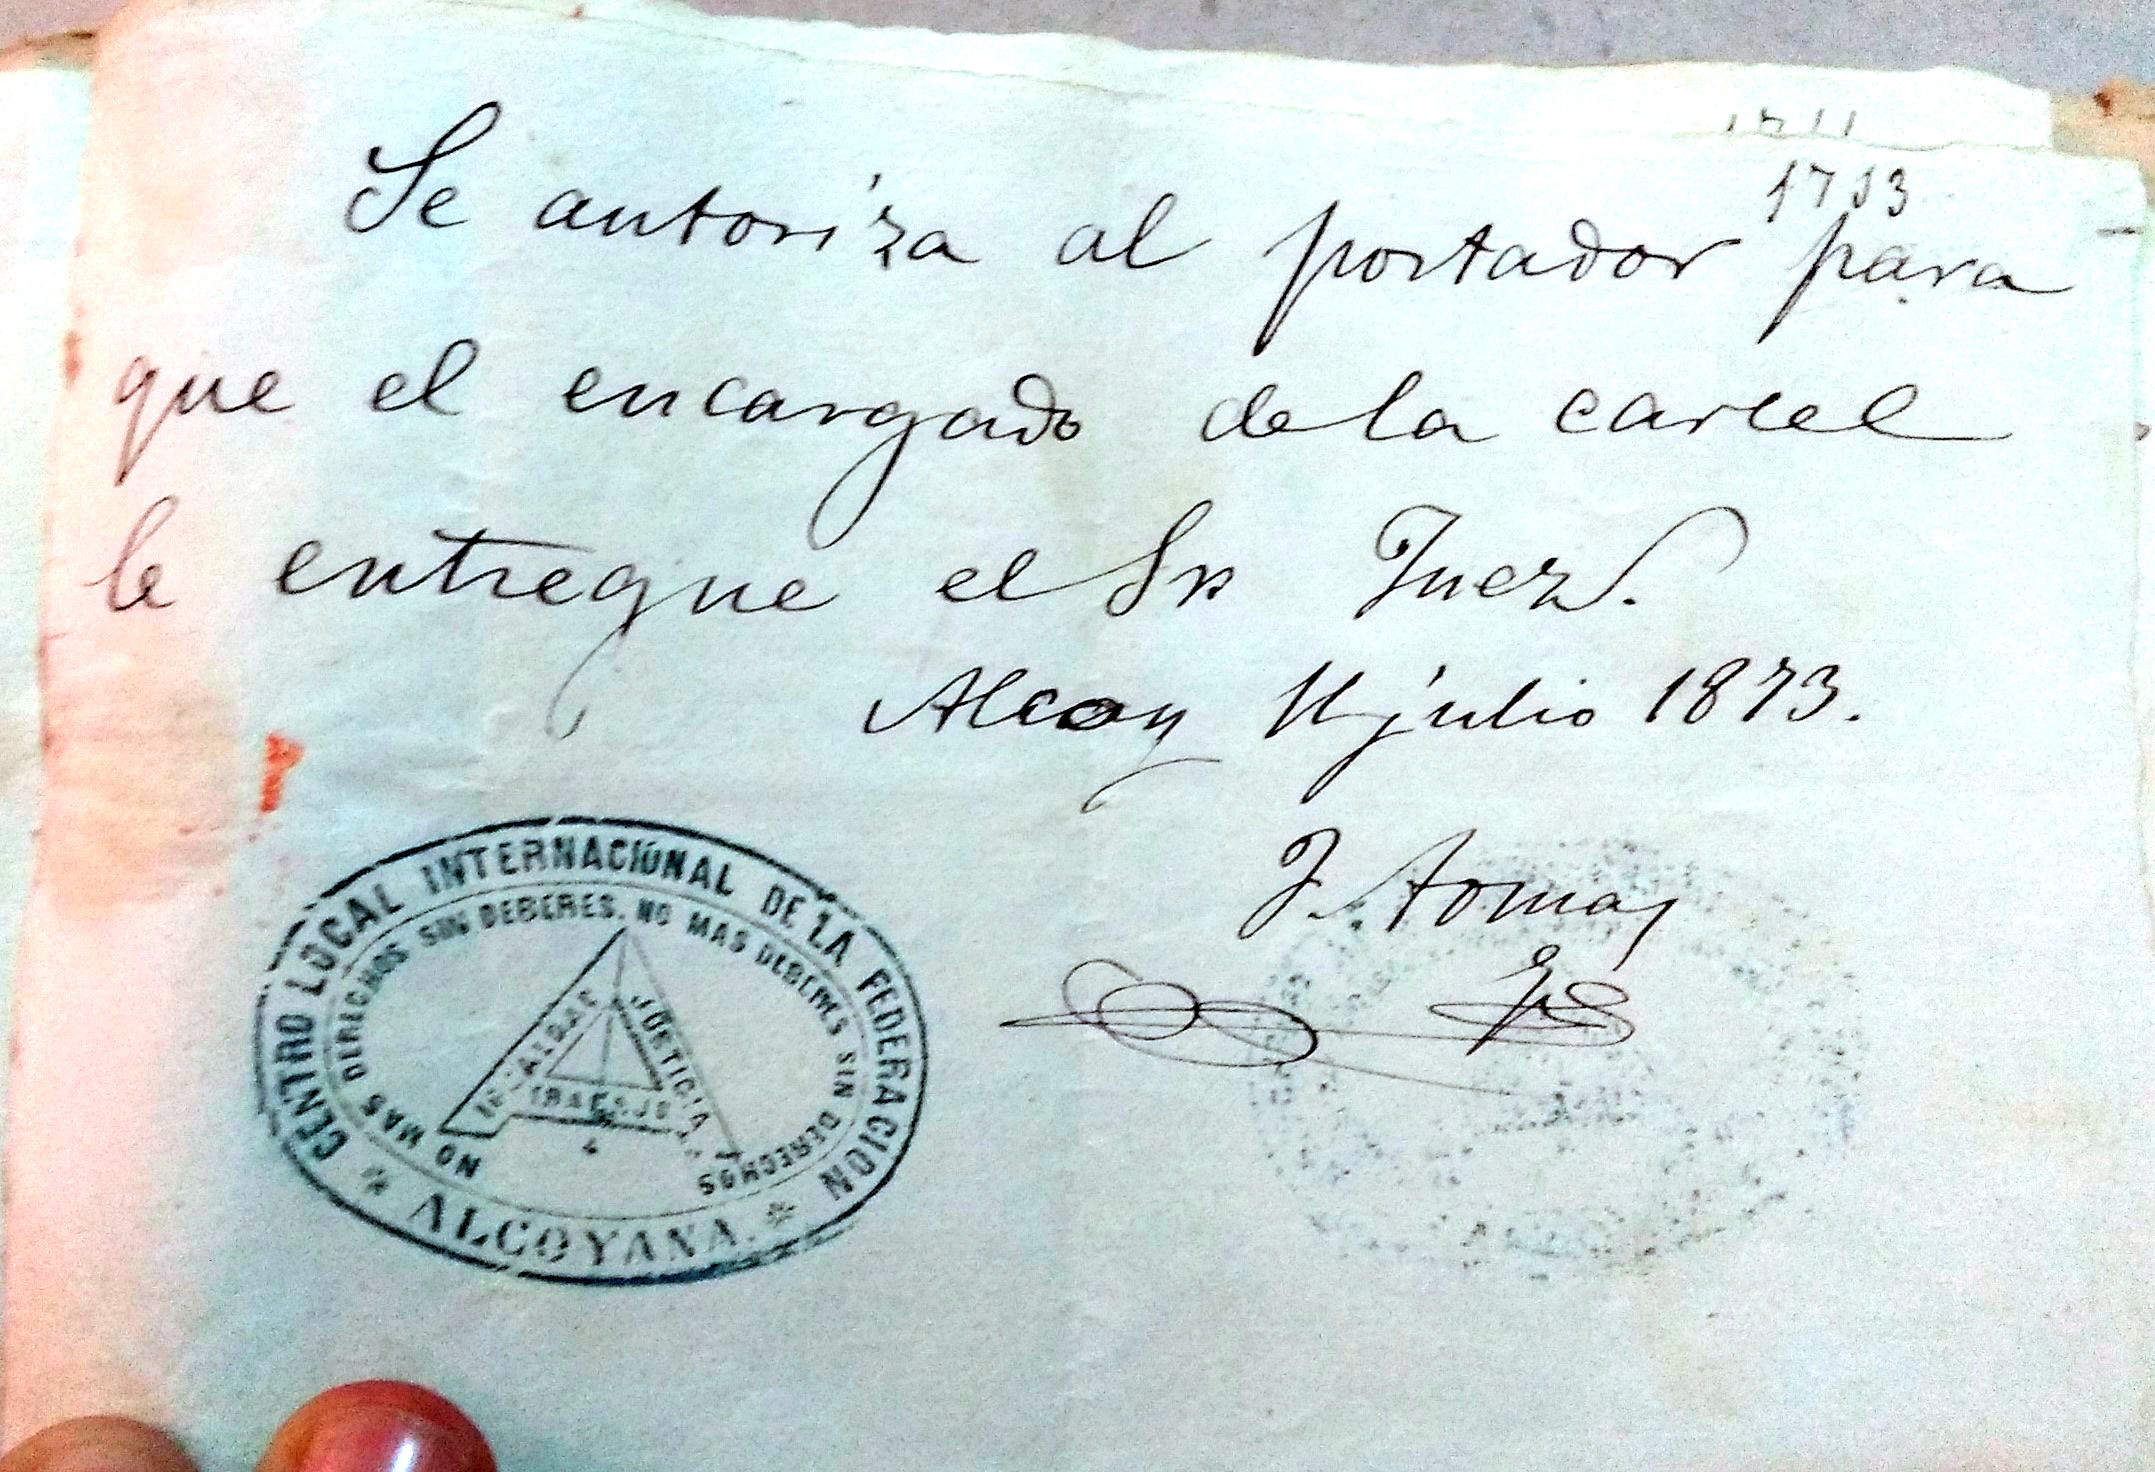 1713
Se autoriza al portador para
que el encargado de la carcel
le entregue el Sr Juez.
Alcoy 11 julio 1873.
J. Tomas
CENTRO LOCAL INTERNACIONAL DE LA FEDERACION
* ALCOYANA. *
NO MAS DERECHOS SIN DEBERES. NO MAS DEBERES SIN DERECHOS
IGUALDAD
JUSTICIA
TRABAJO